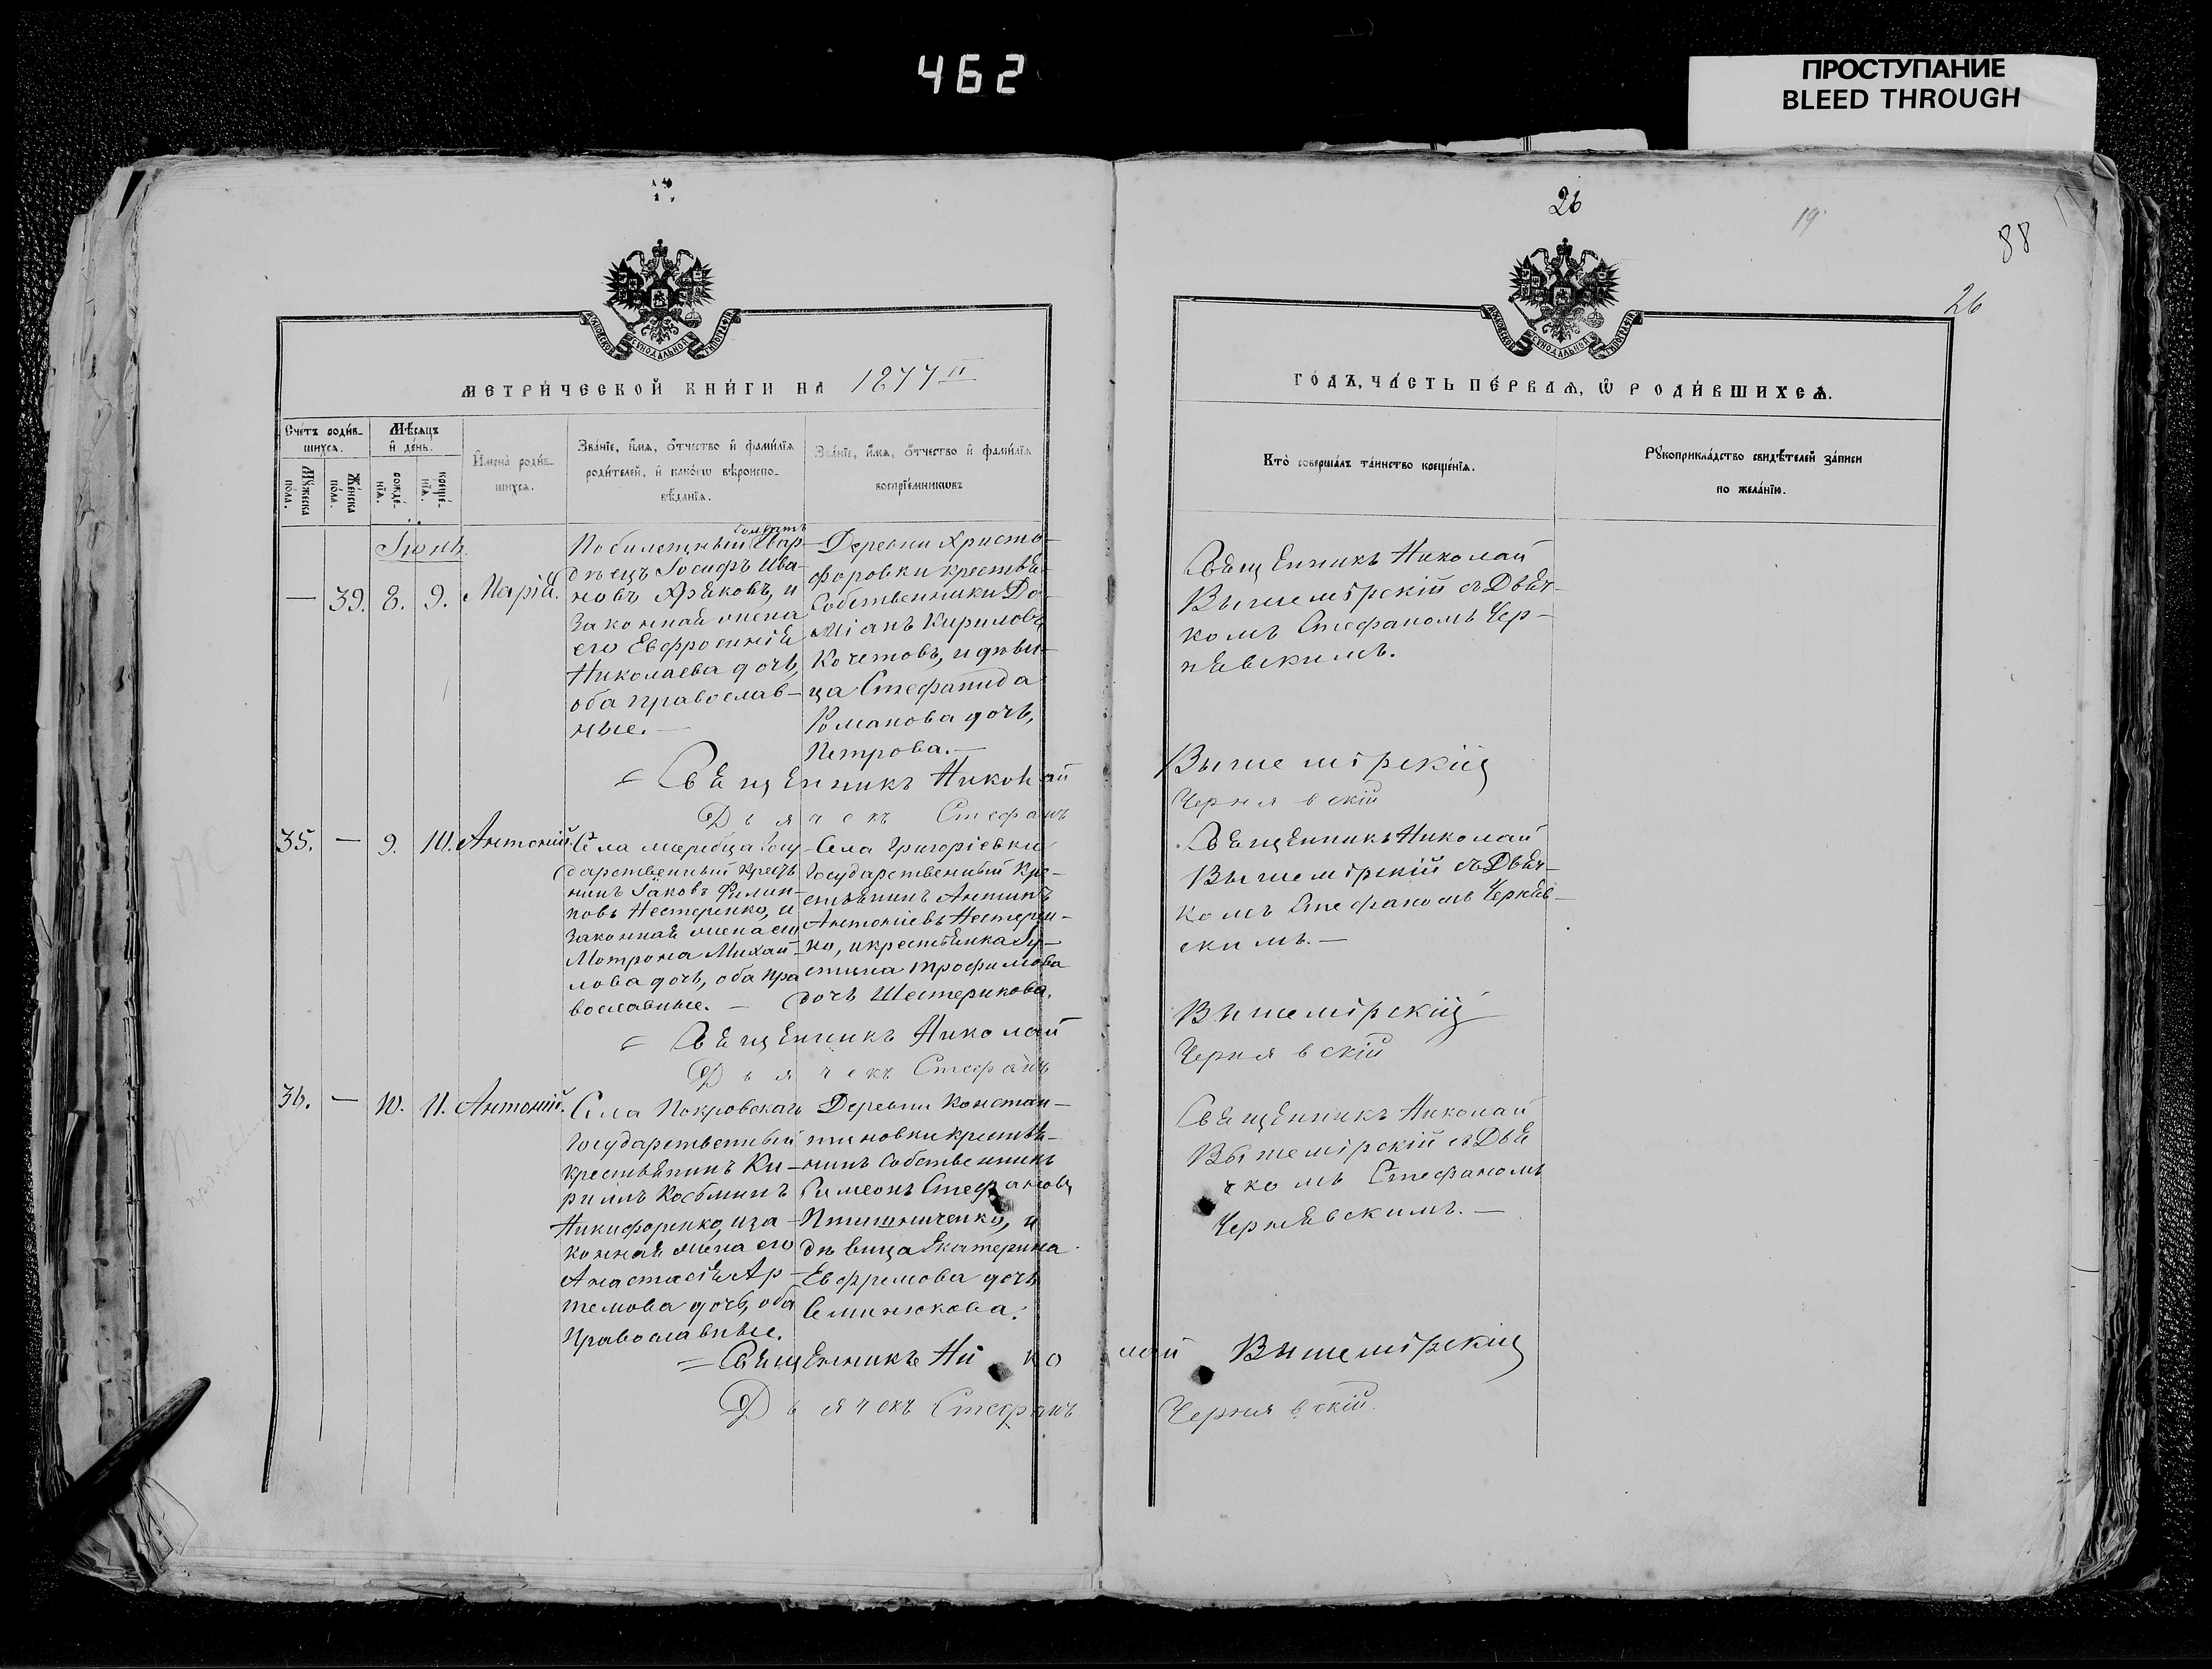 462
ПРОСТУПАНИЕ
BLEED THROUGH
26
19
88
26
МОСКОВСКОЙ СѴНОДАЛЬНОЙ ТИПОГРАФІИ
МОСКОВСКОЙ СѴНОДАЛЬНОЙ ТИПОГРАФІИ
МЕТРИ́ЧЕСКОЙ КНИ́ГИ НА 1877 й
ГО́ДЪ, ЧА́СТЬ ПЕ́РВАѦ, Ѿ РОДИ́ВШИХСѦ.
Сче́тъ роди́в-
шихсѧ.
Мꙋ́жеска
по́ла.
Же́нска
по́ла.
Мѣ́сѧцъ
и҆ де́нь.
рожде́-
нїѧ.
креще́-
нїѧ.
И҆мена̀ роди́в-
шихсѧ.
Зва́нїе, и҆́мѧ, ѻ҆́тчество и҆ фами́лїѧ
роди́телей, и҆ како́гѡ вѣроиспо-
вѣ́данїѧ.
Зва́нїе, и҆́мѧ, ѻ҆́тчество и҆ фами́лїѧ
воспрїе́мникѡвъ
Кто̀ соверша́лъ та́инство креще́нїѧ.
Рꙋкоприкла́дство свидѣ́телей за́писи
по жела́нїю.
Іюнь.
— 39. 8. 9. Марія.
По билетный солдатъ Гвар-
дѣецъ Іосифъ Ива-
новъ и
законная жена
его Евфросинія
Николаева дочь,
оба православ-
ные. —
Деревни Христо-
форовки крестья-
Собственники До-
міанъ Кириловъ
Кочетовъ, и дѣви-
ца Стефанида
Романова дочь,
Петрова. —
Священникъ Николай
Вышемірскій съ Дьяч-
комъ Стефаномъ Чер-
нявскимъ.
= Священникъ Николай Вышемірскій
Дьячекъ Стефанъ Чернявскій
35. — 9. 10. Антоній.
Села Госу-
дарственный Крестья
нинъ Іаковъ Филип-
повъ Нестеренко, и
законная жена его
Мотрона Михай-
лова дочь, оба пра
вославные. —
Села Григоріевки
Государственный Кре-
стьянинъ Антипъ
Антоніевъ Нестерен-
ко, и крестьянка Іу-
стина Трофимова
дочь Шестерикова.
Священникъ Николай
Вышемірскій съ Дьяч-
комъ Стефаномъ Черняв-
скимъ. —
= Священникъ Николай Вышемірскій
Дьячекъ Стефанъ Чернявскій
36. — 10. 11. Антоній.
Села Покровскаго
Государственный
крестьянинъ Ки-
рилъ Косьминъ
Никифоренко, и за-
конная жена его
Анастасія Ар-
темова дочь, оба
православные.
Деревни Констан-
тиновки крестья-
нинъ Собственникъ
Симеонъ Стефановъ
Птишниченко, и
дѣвица Екатерина
Евфремова дочь
Семинюкова.
Священникъ Николай
Вышемірскій съ Дья
чкомъ Стефаномъ
Чернявскимъ. —
= Священникъ Николай Вышемірскій
Дьячекъ Стефанъ Чернявскій.